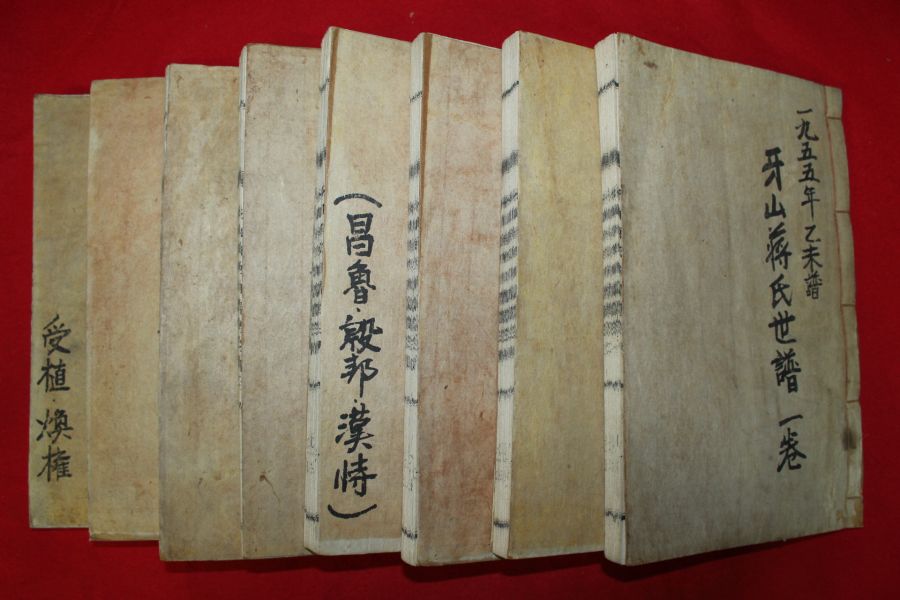 一九五五年 乙未譜
牙山蔣氏世譜 一卷
(昌魯·毅邦·漢恃)
受植·煥權